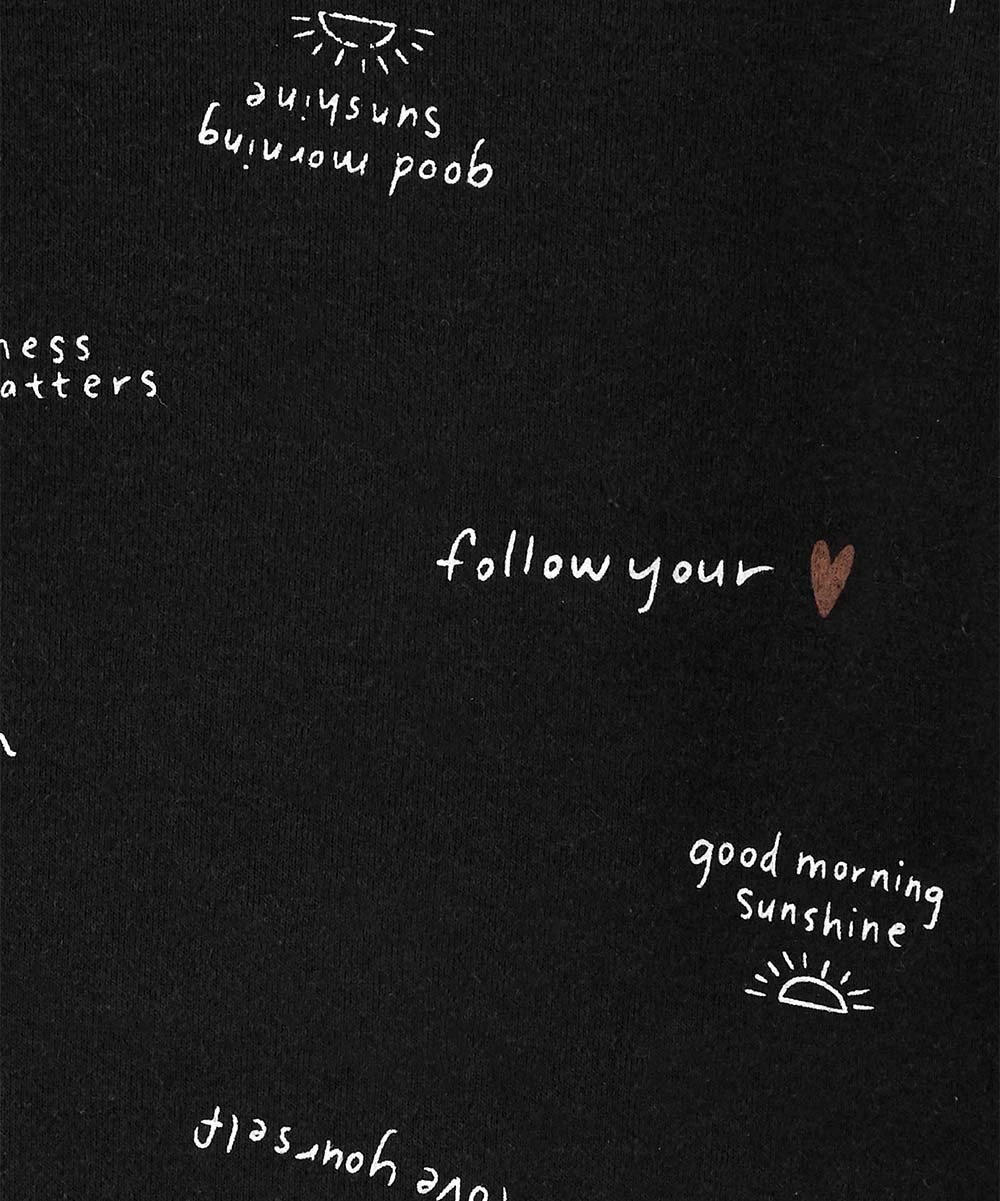 good morning
sunshine
ness
atters
follow your
good morning
sunshine
love yourself